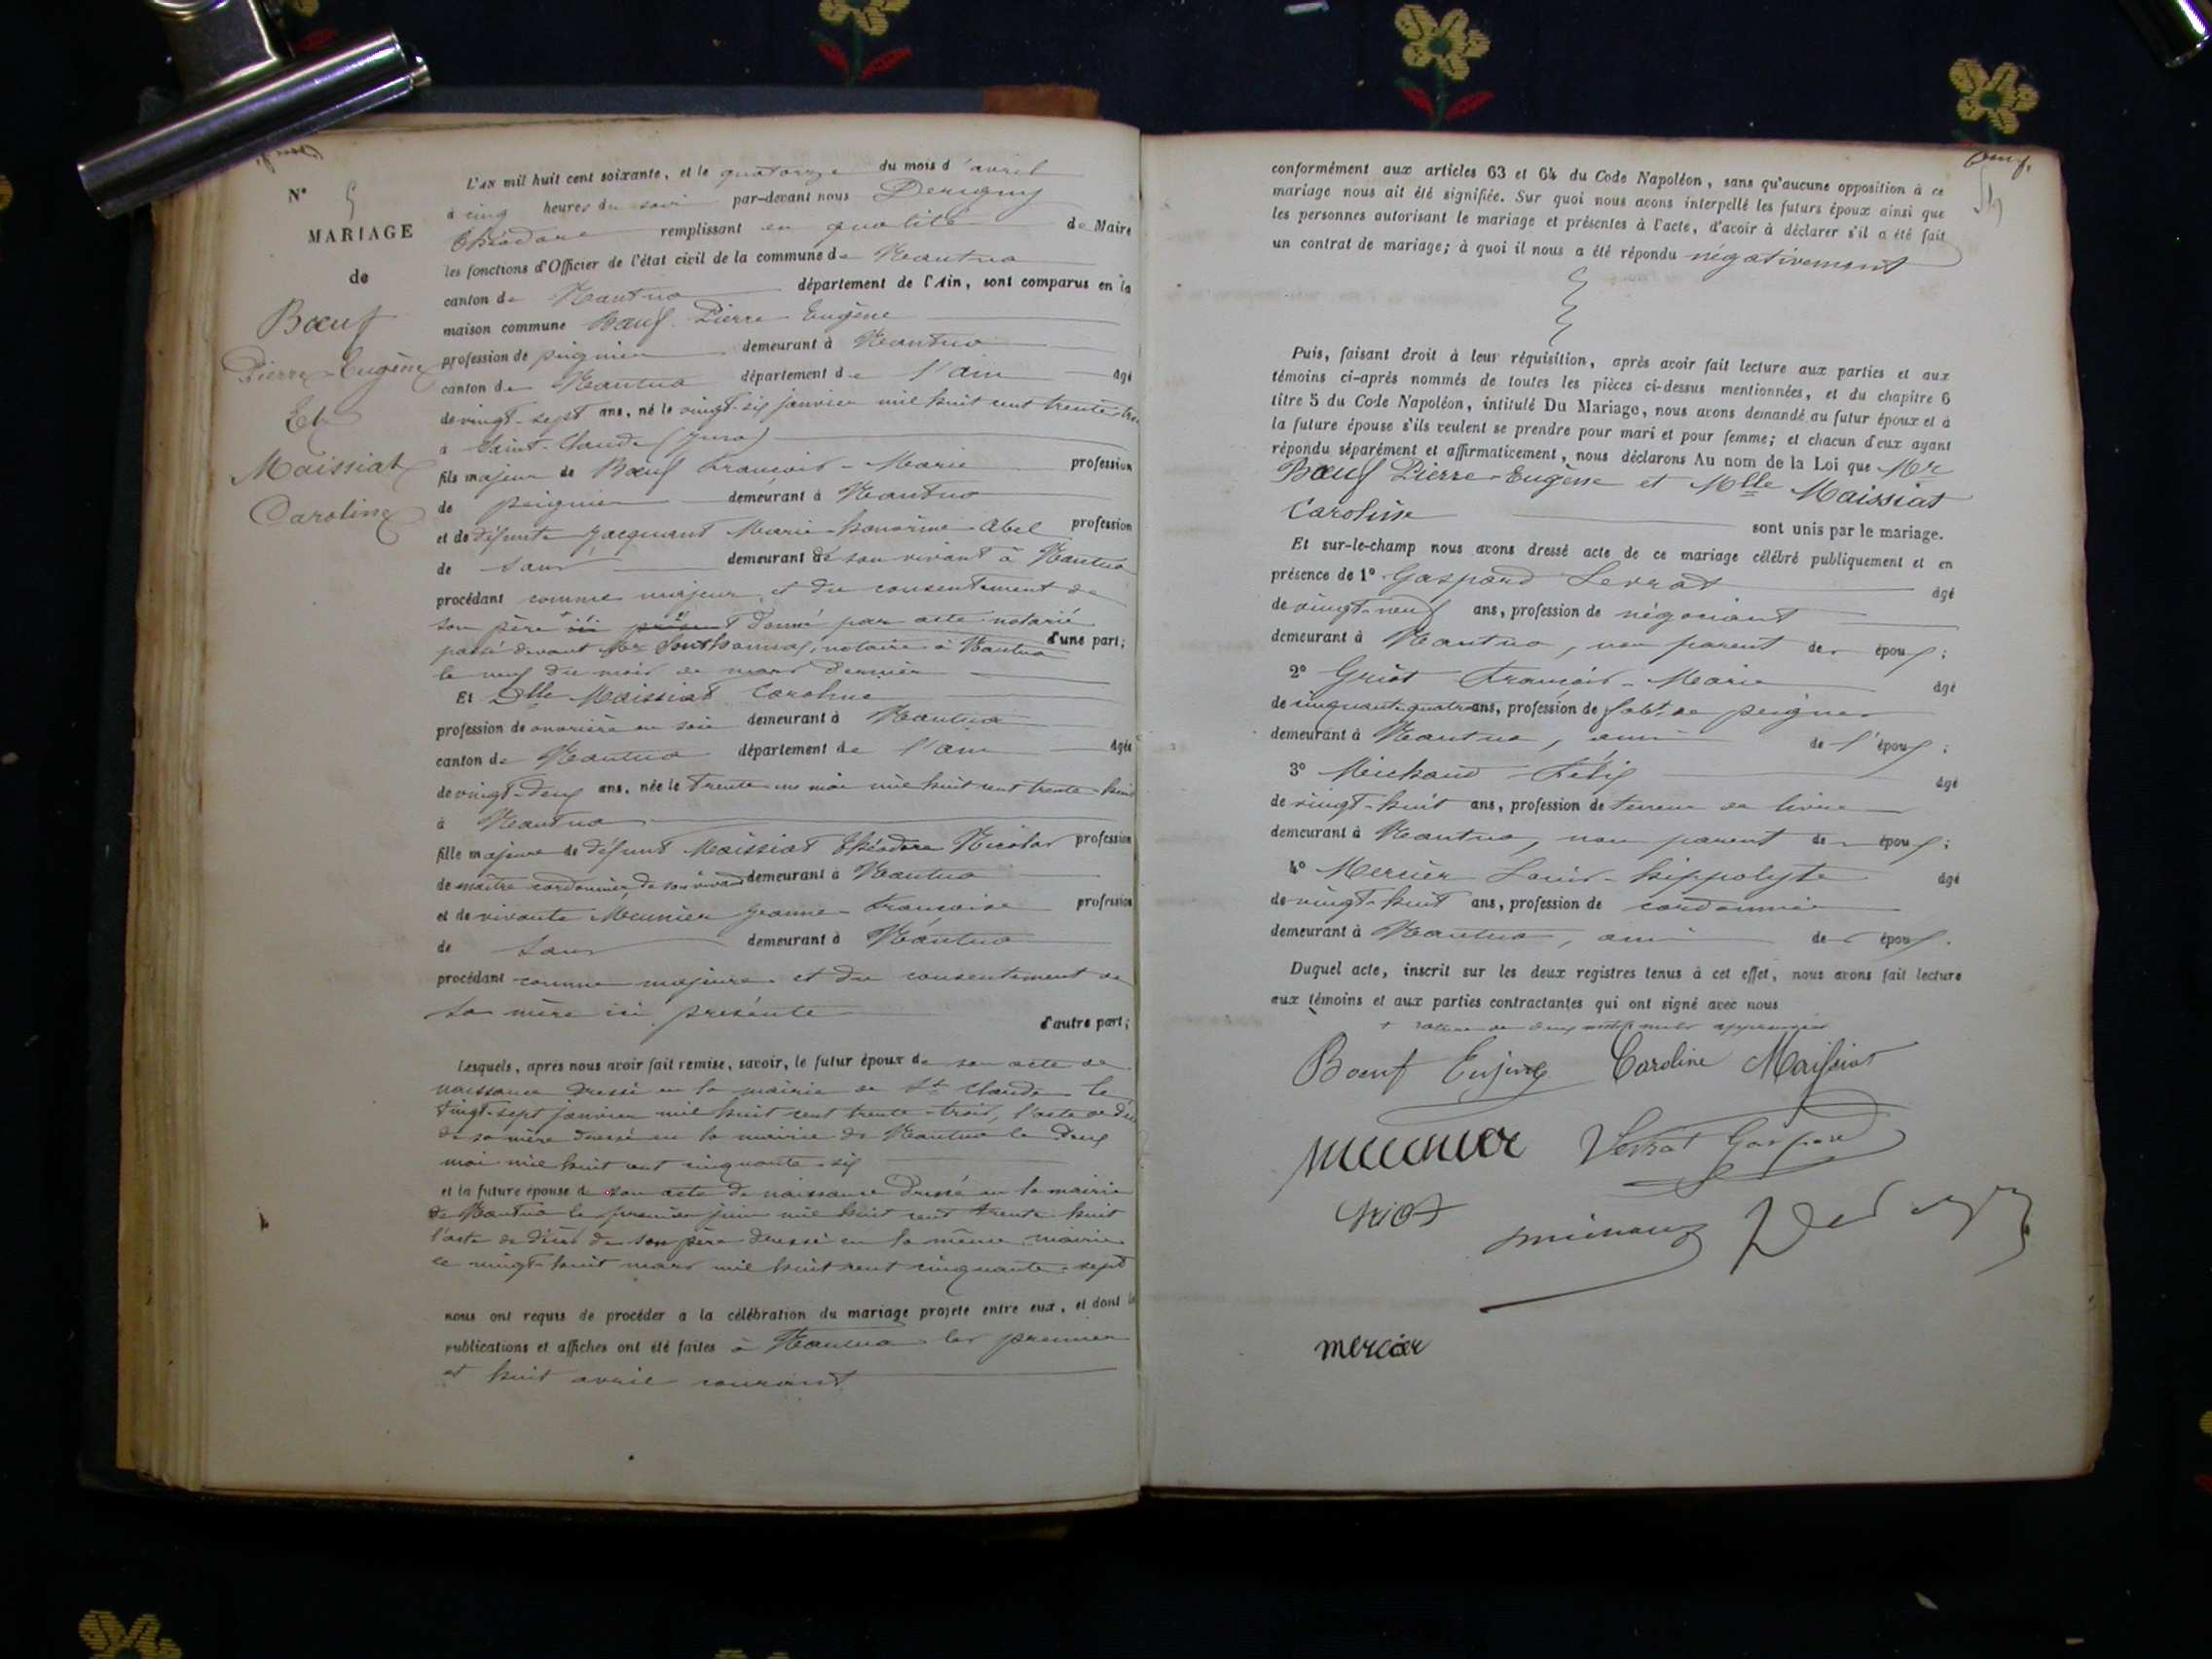 N° 5
MARIAGE
de
Bœuf
Pierre-Eugène
Et
Maissiat
Caroline
L'AN mil huit cent soixante, et le quatorze du mois d'avril
à cinq heures du soir par-devant nous Derigny
Théodore remplissant en qualité de Maire
les fonctions d'Officier de l'état civil de la commune de Nantua
canton de Nantua département de l'Ain, sont comparus en la
maison commune Bœuf Pierre-Eugène
profession de peignier demeurant à Nantua
canton de Nantua département de l'ain âgé
de vingt-sept ans, né le vingt-six janvier mil huit cent trente-trois
à Saint-Claude (Jura)
fils majeur de Bœuf François-Marie profession
de peignier demeurant à Nantua
et de défunte Jacquant Marie-honorine-Abel profession
de sans demeurant de son vivant à Nantua
procédant comme majeur et du consentement de
son père ici présent donné par acte notarié
passé devant Me notaire à Nantua d'une part;
le neuf du mois de mars dernier
Et Dlle Maissiat Caroline
profession de ouvrière en soie demeurant à Nantua
canton de Nantua département de l'ain âgée
de vingt-deux ans, née le trente un mai mil huit cent trente-huit
à Nantua
fille majeure de défunt Maissiat Théodore Nicolas profession
de maître cordonnier, de son vivant demeurant à Nantua
et de vivante Meunier Jeanne-Françoise profession
de sans demeurant à Nantua
procédant comme majeure et du consentement de
sa mère ici présente
d'autre part;
Lesquels, après nous avoir fait remise, savoir, le futur époux de son acte de
naissance dressé en la mairie de St Claude le
vingt-sept janvier mil huit cent trente-trois, l'acte de décès
de sa mère dressé en la mairie de Nantua le deux
mai mil huit cent cinquante-six
et la future épouse de son acte de naissance dressé en la mairie
de Nantua le premier juin mil huit cent trente huit
l'acte de décès de son père dressé en la même mairie
le vingt-huit mars mil huit cent cinquante-sept
nous ont requis de procéder a la célébration du mariage projeté entre eux, et dont les
publications et affiches ont été faites à Nantua les premier
et huit avril courant
conformément aux articles 63 et 64 du Code Napoléon, sans qu'aucune opposition à ce
mariage nous ait été signifiée. Sur quoi nous avons interpellé les futurs époux ainsi que
les personnes autorisant le mariage et présentes à l'acte, d'avoir à déclarer s'il a été fait
un contrat de mariage; à quoi il nous a été répondu négativement
Puis, faisant droit à leur réquisition, après avoir fait lecture aux parties et aux
témoins ci-après nommés de toutes les pièces ci-dessus mentionnées, et du chapitre 6
titre 5 du Code Napoléon, intitulé Du Mariage, nous avons demandé au futur époux et à
la future épouse s'ils veulent se prendre pour mari et pour femme; et chacun d'eux ayant
répondu séparément et affirmativement, nous déclarons Au nom de la Loi que Mr
Bœuf Pierre-Eugène et Mlle Maissiat
Caroline sont unis par le mariage.
Et sur-le-champ nous avons dressé acte de ce mariage célébré publiquement et en
présence de 1° Gaspard Levrat âgé
de vingt-neuf ans, profession de négociant
demeurant à Nantua, non parent des époux;
2° Griot François-Marie âgé
de cinquante quatre ans, profession de fabt. de peignes
demeurant à Nantua, ami de l'époux;
3° Michaud Félix âgé
de vingt-huit ans, profession de teneur de livres
demeurant à Nantua, non parent des époux;
4° Mercier Louis-hippolyte âgé
de vingt-huit ans, profession de cordonnier
demeurant à Nantua, ami des époux.
Duquel acte, inscrit sur les deux registres tenus à cet effet, nous avons fait lecture
aux témoins et aux parties contractantes qui ont signé avec nous
+ rature de deux mots nuls approuvée
Bœuf Eugène Caroline Maissiat
meunier Levrat Gaspard
Griot michaud Derigny
mercier